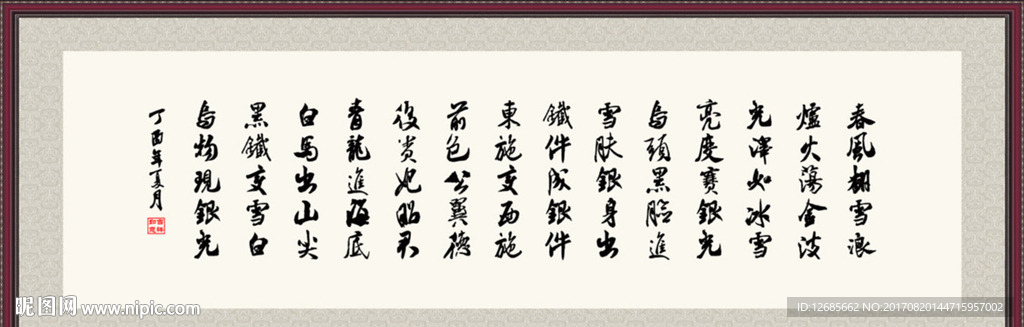 春風翻雪浪
爐火蕩金波
光澤如冰雪
亮度賽銀光
烏頭黑臉進
雪膚銀身出
鐵件成銀件
東施變西施
前包公翼德
後貴妃昭君
青龍進海底
白馬出山尖
黑鐵變雪白
烏物現銀光
丁酉年夏月
吉祥如意
昵图网 www.nipic.com
ID:12685662 NO:20170820144715957002